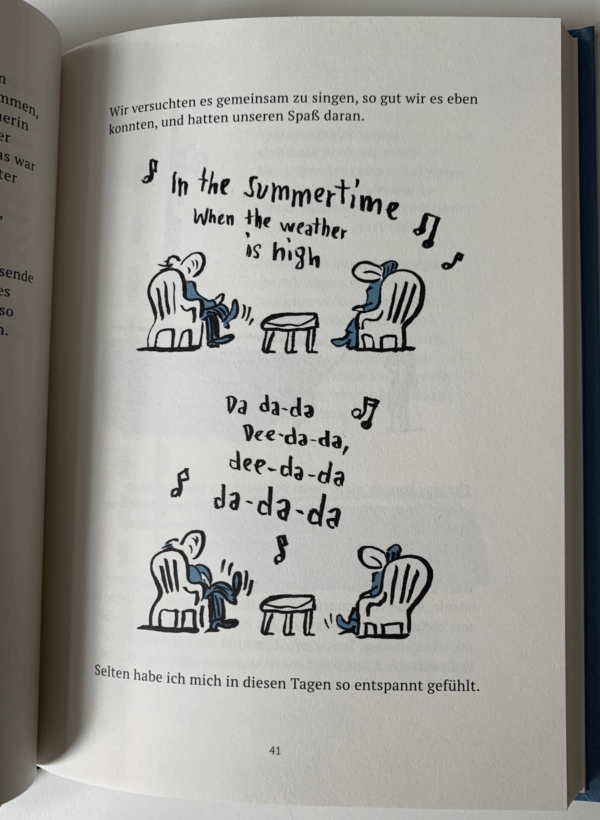 mmen,
erin
er
as war
ter
sende
es
so
n.
Wir versuchten es gemeinsam zu singen, so gut wir es eben
konnten, und hatten unseren Spaß daran.
In the Summertime
When the weather
is high
Da da-da
Dee-da-da,
dee-da-da
da-da-da
Selten habe ich mich in diesen Tagen so entspannt gefühlt.
41